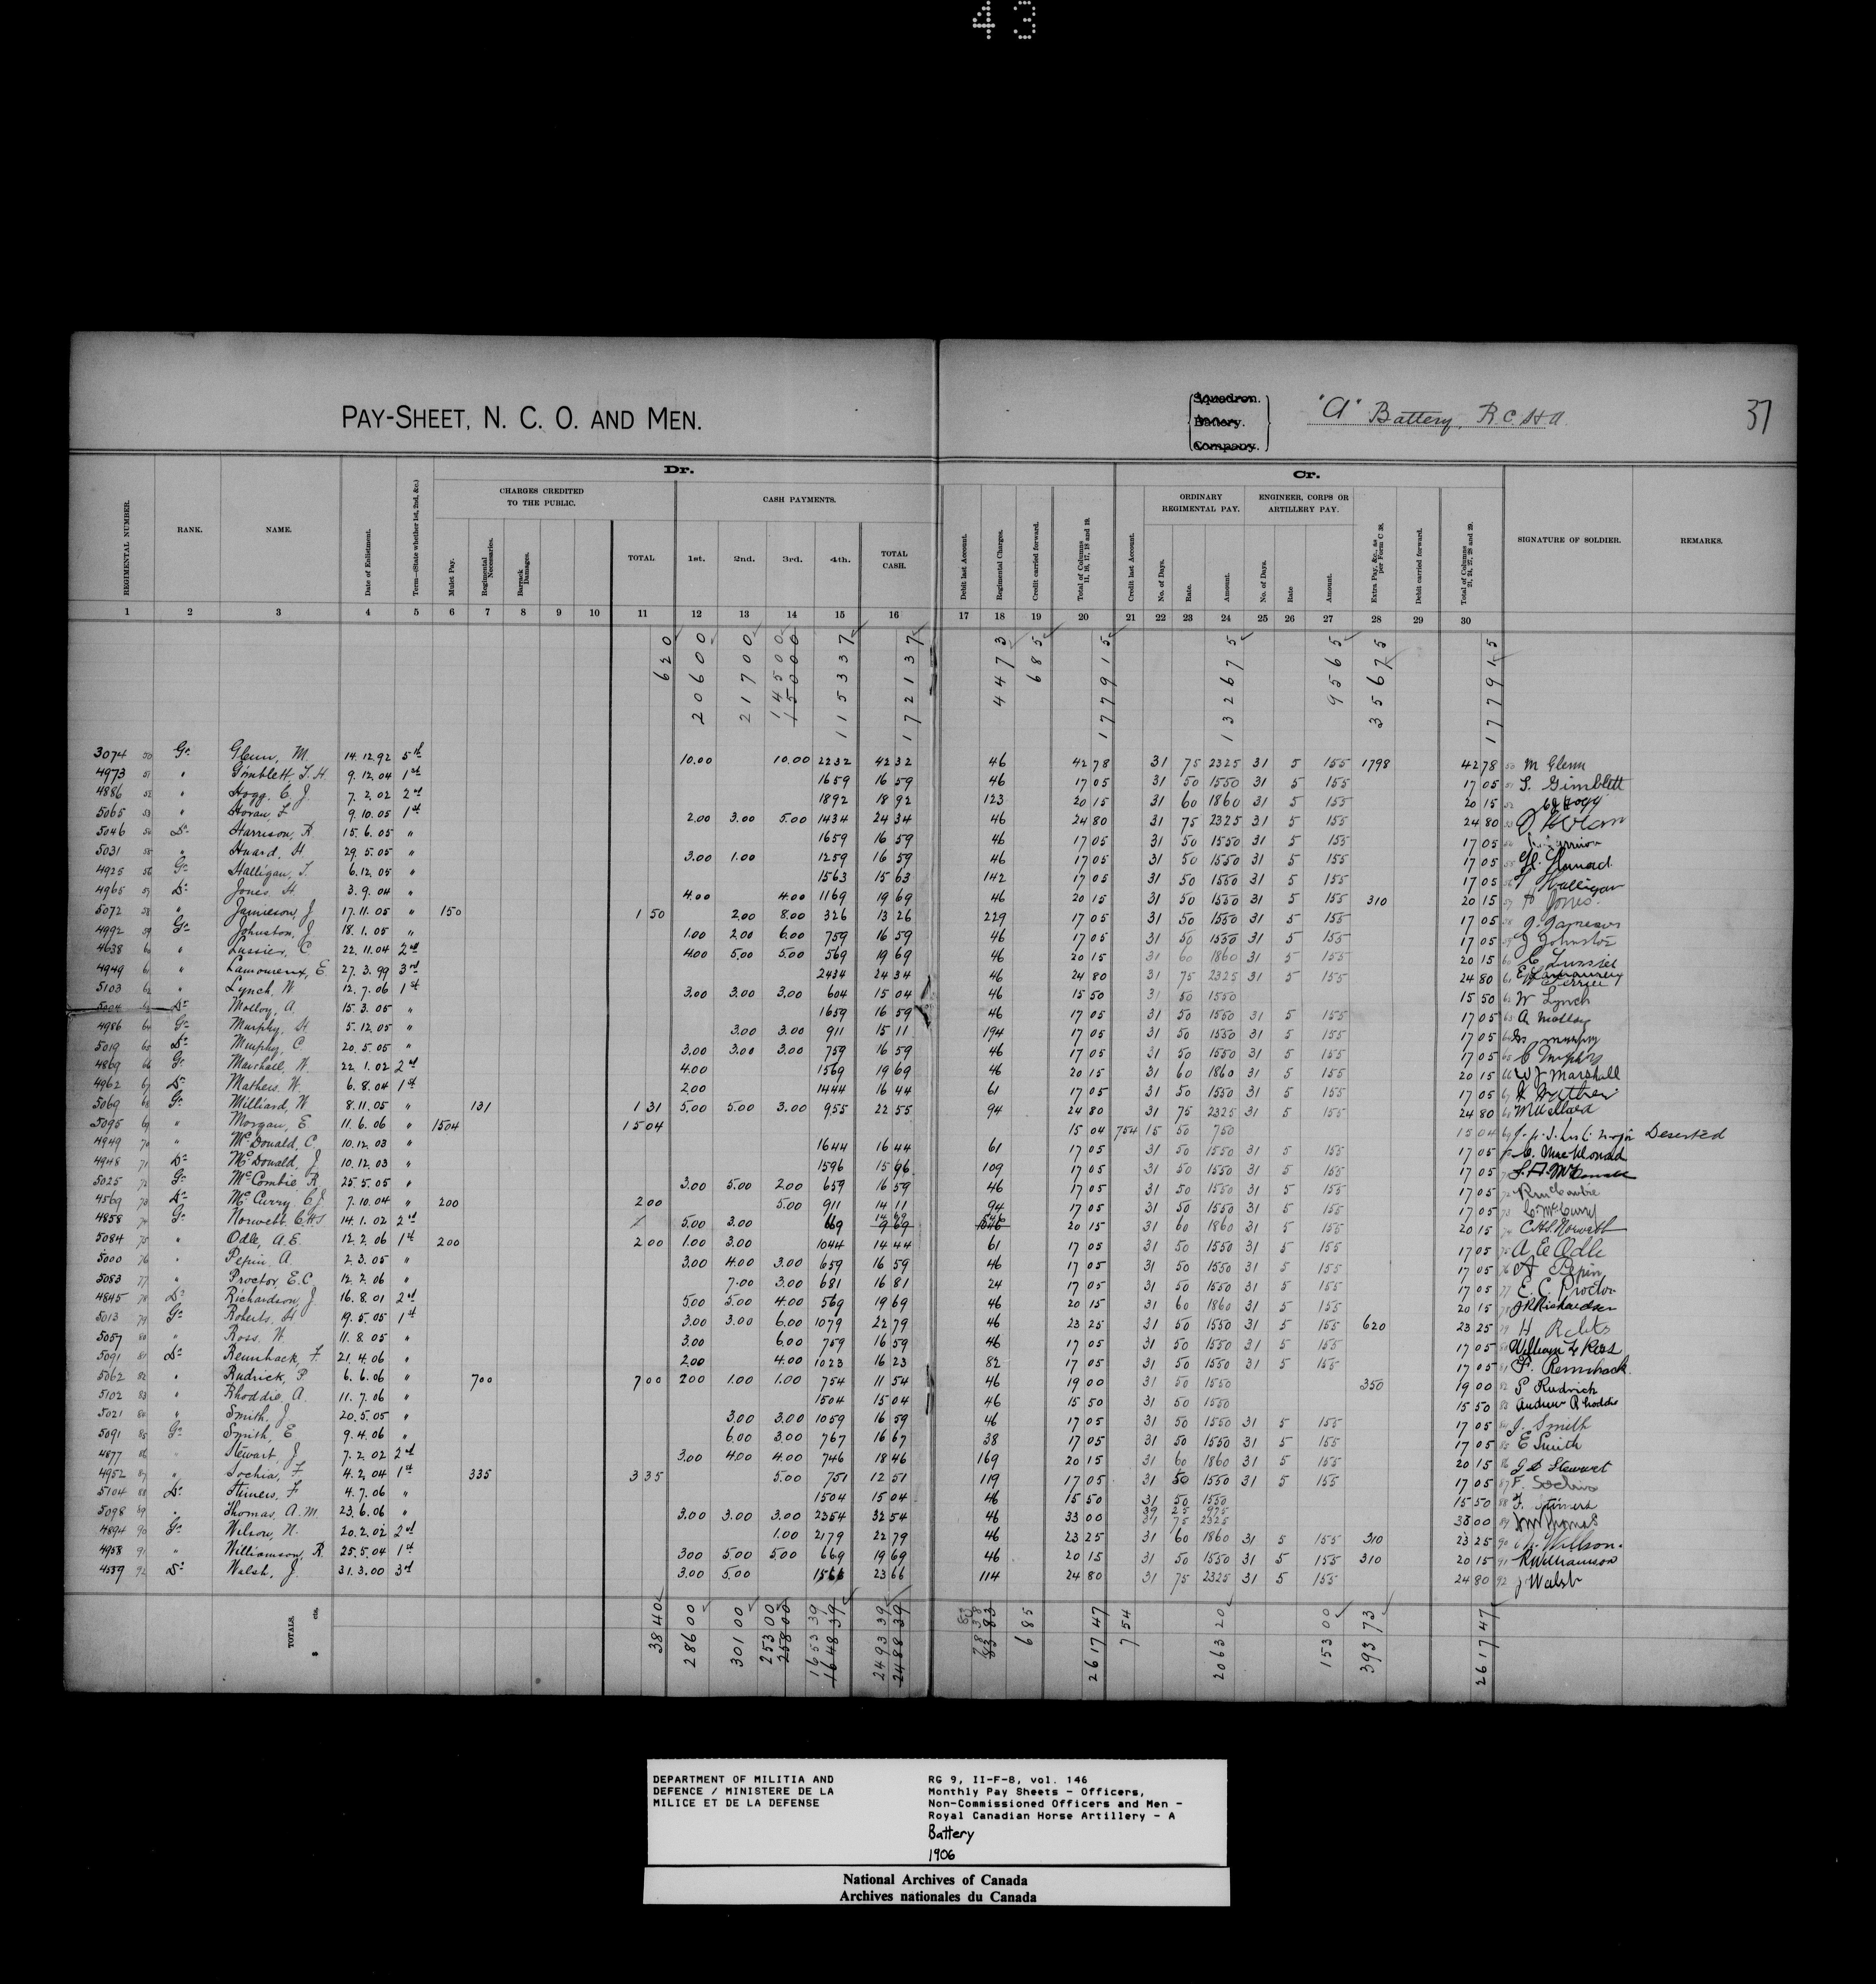 43
PAY-SHEET, N. C. O. AND MEN.
Squadron.
Battery.
Company.
"A" Battery, R.C.H.A.
37
Dr.
Cr.
CHARGES CREDITED TO THE PUBLIC.
CASH PAYMENTS.
ORDINARY REGIMENTAL PAY.
ENGINEER, CORPS OR ARTILLERY PAY.
REGIMENTAL NUMBER. RANK. NAME. Date of Enlistment. Term—(State whether 1st, 2nd, &c.) Mulct Pay. Regimental Necessaries. Barrack Damages. TOTAL 1st. 2nd. 3rd. 4th. TOTAL CASH. Debit last Account. Regimental Charges. Credit carried forward. Total of Columns 11, 16, 17, 18 and 19. Credit last Account. No. of Days. Rate. Amount. No. of Days. Rate Amount. Extra Pay, &c., as per Form C 38. Debit carried forward. Total of Columns 21, 24, 27, 28 and 29. SIGNATURE OF SOLDIER. REMARKS.
1 2 3 4 5 6 7 8 9 10 11 12 13 14 15 16 17 18 19 20 21 22 23 24 25 26 27 28 29 30
620 20600 21700 14500 15000 115337 172137 4473 685 177915 132675 9565 35675 177915
3074 50 Gr. Glenn, M. 14.12.92 5th 10.00 10.00 2232 4232 46 4278 31 75 2325 31 5 155 1798 4278 50 M Glenn
4973 51 " Gimblett, T.H. 9.12.04 1st 1659 1659 46 1705 31 50 1550 31 5 155 1705 51 T. Gimblett
4886 52 " Hogg, C.J. 7.2.02 2nd 1892 1892 123 2015 31 60 1860 31 5 155 2015 52 CJ Hogg
5065 53 " Horan, F. 9.10.05 1st 2.00 3.00 5.00 1434 2434 46 2480 31 75 2325 31 5 155 2480 53 Horan
5046 54 Dr. Harrison, R. 15.6.05 " 1659 1659 46 1705 31 50 1550 31 5 155 1705 54
5031 55 " Huard, H. 29.5.05 " 3.00 1.00 1259 1659 46 1705 31 50 1550 31 5 155 1705 55 H. Huard
4925 56 Gr. Halligan, T. 6.12.05 " 1563 1563 142 1705 31 50 1550 31 5 155 1705 56 T Halligan
4965 57 Dr. Jones, H. 3.9.04 " 4.00 4.00 1169 1969 46 2015 31 50 1550 31 5 155 310 2015 57 H Jones.
5072 58 " Jamieson, J. 17.11.05 " 150 150 2.00 8.00 326 1326 229 1705 31 50 1550 31 5 155 1705 58 J. Jamieson
4992 59 Gr. Johnston, J. 18.1.05 " 1.00 2.00 6.00 759 1659 46 1705 31 50 1550 31 5 155 1705 59 J Johnston
4638 60 " Lussier, C. 22.11.04 2nd 4.00 5.00 5.00 569 1969 46 2015 31 60 1860 31 5 155 2015 60 C Lussier
4949 61 " Lamoureux, E. 27.3.99 3rd 2434 2434 46 2480 31 75 2325 31 5 155 2480 61 E Lamoureux
5103 62 " Lynch, W. 12.7.06 1st 3.00 3.00 3.00 604 1504 46 1550 31 50 1550 1550 62 W Lynch
5004 63 Dr. Molloy, A. 15.3.05 " 1659 1659 46 1705 31 50 1550 31 5 155 1705 63 A Molloy
4986 64 Gr. Murphy, H. 5.12.05 " 3.00 3.00 911 1511 194 1705 31 50 1550 31 5 155 1705 64 H Murphy
5019 65 Dr. Murphy, C. 20.5.05 " 3.00 3.00 3.00 759 1659 46 1705 31 50 1550 31 5 155 1705 65 C Murphy
4869 66 Gr. Marshall, W. 22.1.02 2nd 4.00 1569 1969 46 2015 31 60 1860 31 5 155 2015 66 W J Marshall
4962 67 Dr. Mathers, W. 6.8.04 1st 2.00 1444 1644 61 1705 31 50 1550 31 5 155 1705 67
5069 68 Gr. Milliard, W. 8.11.05 " 131 131 5.00 5.00 3.00 955 2255 94 2480 31 75 2325 31 5 155 2480 68
5095 69 " Morgan, E. 11.6.06 " 1504 1504 1504 754 15 50 750 1504 69 Major Deserted
4949 70 " McDonald, C. 10.12.03 " 1644 1644 61 1705 31 50 1550 31 5 155 1705 C. MacDonald
4948 71 Dr. McDonald, J. 10.12.03 " 1596 1596 109 1705 31 50 1550 31 5 155 1705 McDonald
5025 72 Gr. McCombie, R. 25.5.05 " 3.00 5.00 2.00 659 1659 46 1705 31 50 1550 31 5 155 1705 72 R McCombie
4569 73 Dr. McCurry, C.J. 7.10.04 " 200 200 5.00 911 1411 94 1705 31 50 1550 31 5 155 1705 73 C. McCurry
4858 74 Gr. Norwebb, C.H.S. 14.1.02 2nd 5.00 3.00 669 1469 969 546 1046 2015 31 60 1860 31 5 155 2015 74 C.H.S. Norwebb
5084 75 " Odle, A.E. 12.2.06 1st 200 200 1.00 3.00 1044 1444 61 1705 31 50 1550 31 5 155 1705 75 A E Odle
5000 76 " Pepin, A. 2.3.05 " 3.00 4.00 3.00 659 1659 46 1705 31 50 1550 31 5 155 1705 76 A Pepin
5083 77 " Proctor, E.C. 12.2.06 " 7.00 3.00 681 1681 24 1705 31 50 1550 31 5 155 1705 77 E. C. Proctor
4845 78 Dr. Richardson, J. 16.8.01 2nd 5.00 5.00 4.00 569 1969 46 2015 31 60 1860 31 5 155 2015 78 J R Richardson
5013 79 Gr. Roberts, H. 19.5.05 1st 3.00 3.00 6.00 1079 2279 46 2325 31 50 1550 31 5 155 620 2325 79 H Roberts
5057 80 " Ross, W. 11.8.05 " 3.00 6.00 759 1659 46 1705 31 50 1550 31 5 155 1705 80 William F Ross
5091 81 Dr. Rennhack, F. 21.4.06 " 2.00 4.00 1023 1623 82 1705 31 50 1550 31 5 155 1705 81 F. Rennhack.
5062 82 " Rudrick, P. 6.6.06 " 700 700 200 1.00 1.00 754 1154 46 1900 31 50 1550 350 1900 82 P Rudrick
5102 83 " Rhoddie, A. 11.7.06 " 1504 1504 46 1550 31 50 1550 1550 83 Andrew Rhoddie
5021 84 " Smith, J. 20.5.05 " 3.00 3.00 1059 1659 46 1705 31 50 1550 31 5 155 1705 84 J. Smith
5091 85 Gr. Smith, E. 9.4.06 " 6.00 3.00 767 1667 38 1705 31 50 1550 31 5 155 1705 85 E Smith
4877 86 " Stewart, J. 7.2.02 2nd 3.00 4.00 4.00 746 1846 169 2015 31 60 1860 31 5 155 2015 86 J D Stewart
4952 87 " Sochia, F. 4.2.04 1st 335 335 5.00 751 1251 119 1705 31 50 1550 31 5 155 1705 87 F. Sochia
5104 88 Dr. Steiners, F. 4.7.06 " 1504 1504 46 1550 31 50 1550 1550 88 F. Steiners
5098 89 " Thomas, A.M. 23.6.06 " 3.00 3.00 3.00 2354 3254 46 3300 39 25 975 31 75 2325 3300 89 Thomas
4894 90 Gr. Wilson, N. 20.2.02 2nd 1.00 2179 2279 46 2325 31 60 1860 31 5 155 310 2325 90 N. Willson.
4958 91 " Williamson, R. 25.5.04 1st 300 5.00 5.00 669 1969 46 2015 31 50 1550 31 5 155 310 2015 91 R Williamson
4539 92 Sr. Walsh, J. 31.3.00 3rd 3.00 5.00 1566 2366 114 2480 31 75 2325 31 5 155 2480 92 J Walsh
TOTALS. $ cts. 3840 28600 30100 25300 25800 165339 164839 249339 248839 685 261747 754 206320 15300 39373 261747
DEPARTMENT OF MILITIA AND
DEFENCE / MINISTERE DE LA
MILICE ET DE LA DEFENSE
RG 9, II-F-8, vol. 146
Monthly Pay Sheets - Officers,
Non-Commissioned Officers and Men -
Royal Canadian Horse Artillery - A
Battery
1906
National Archives of Canada
Archives nationales du Canada